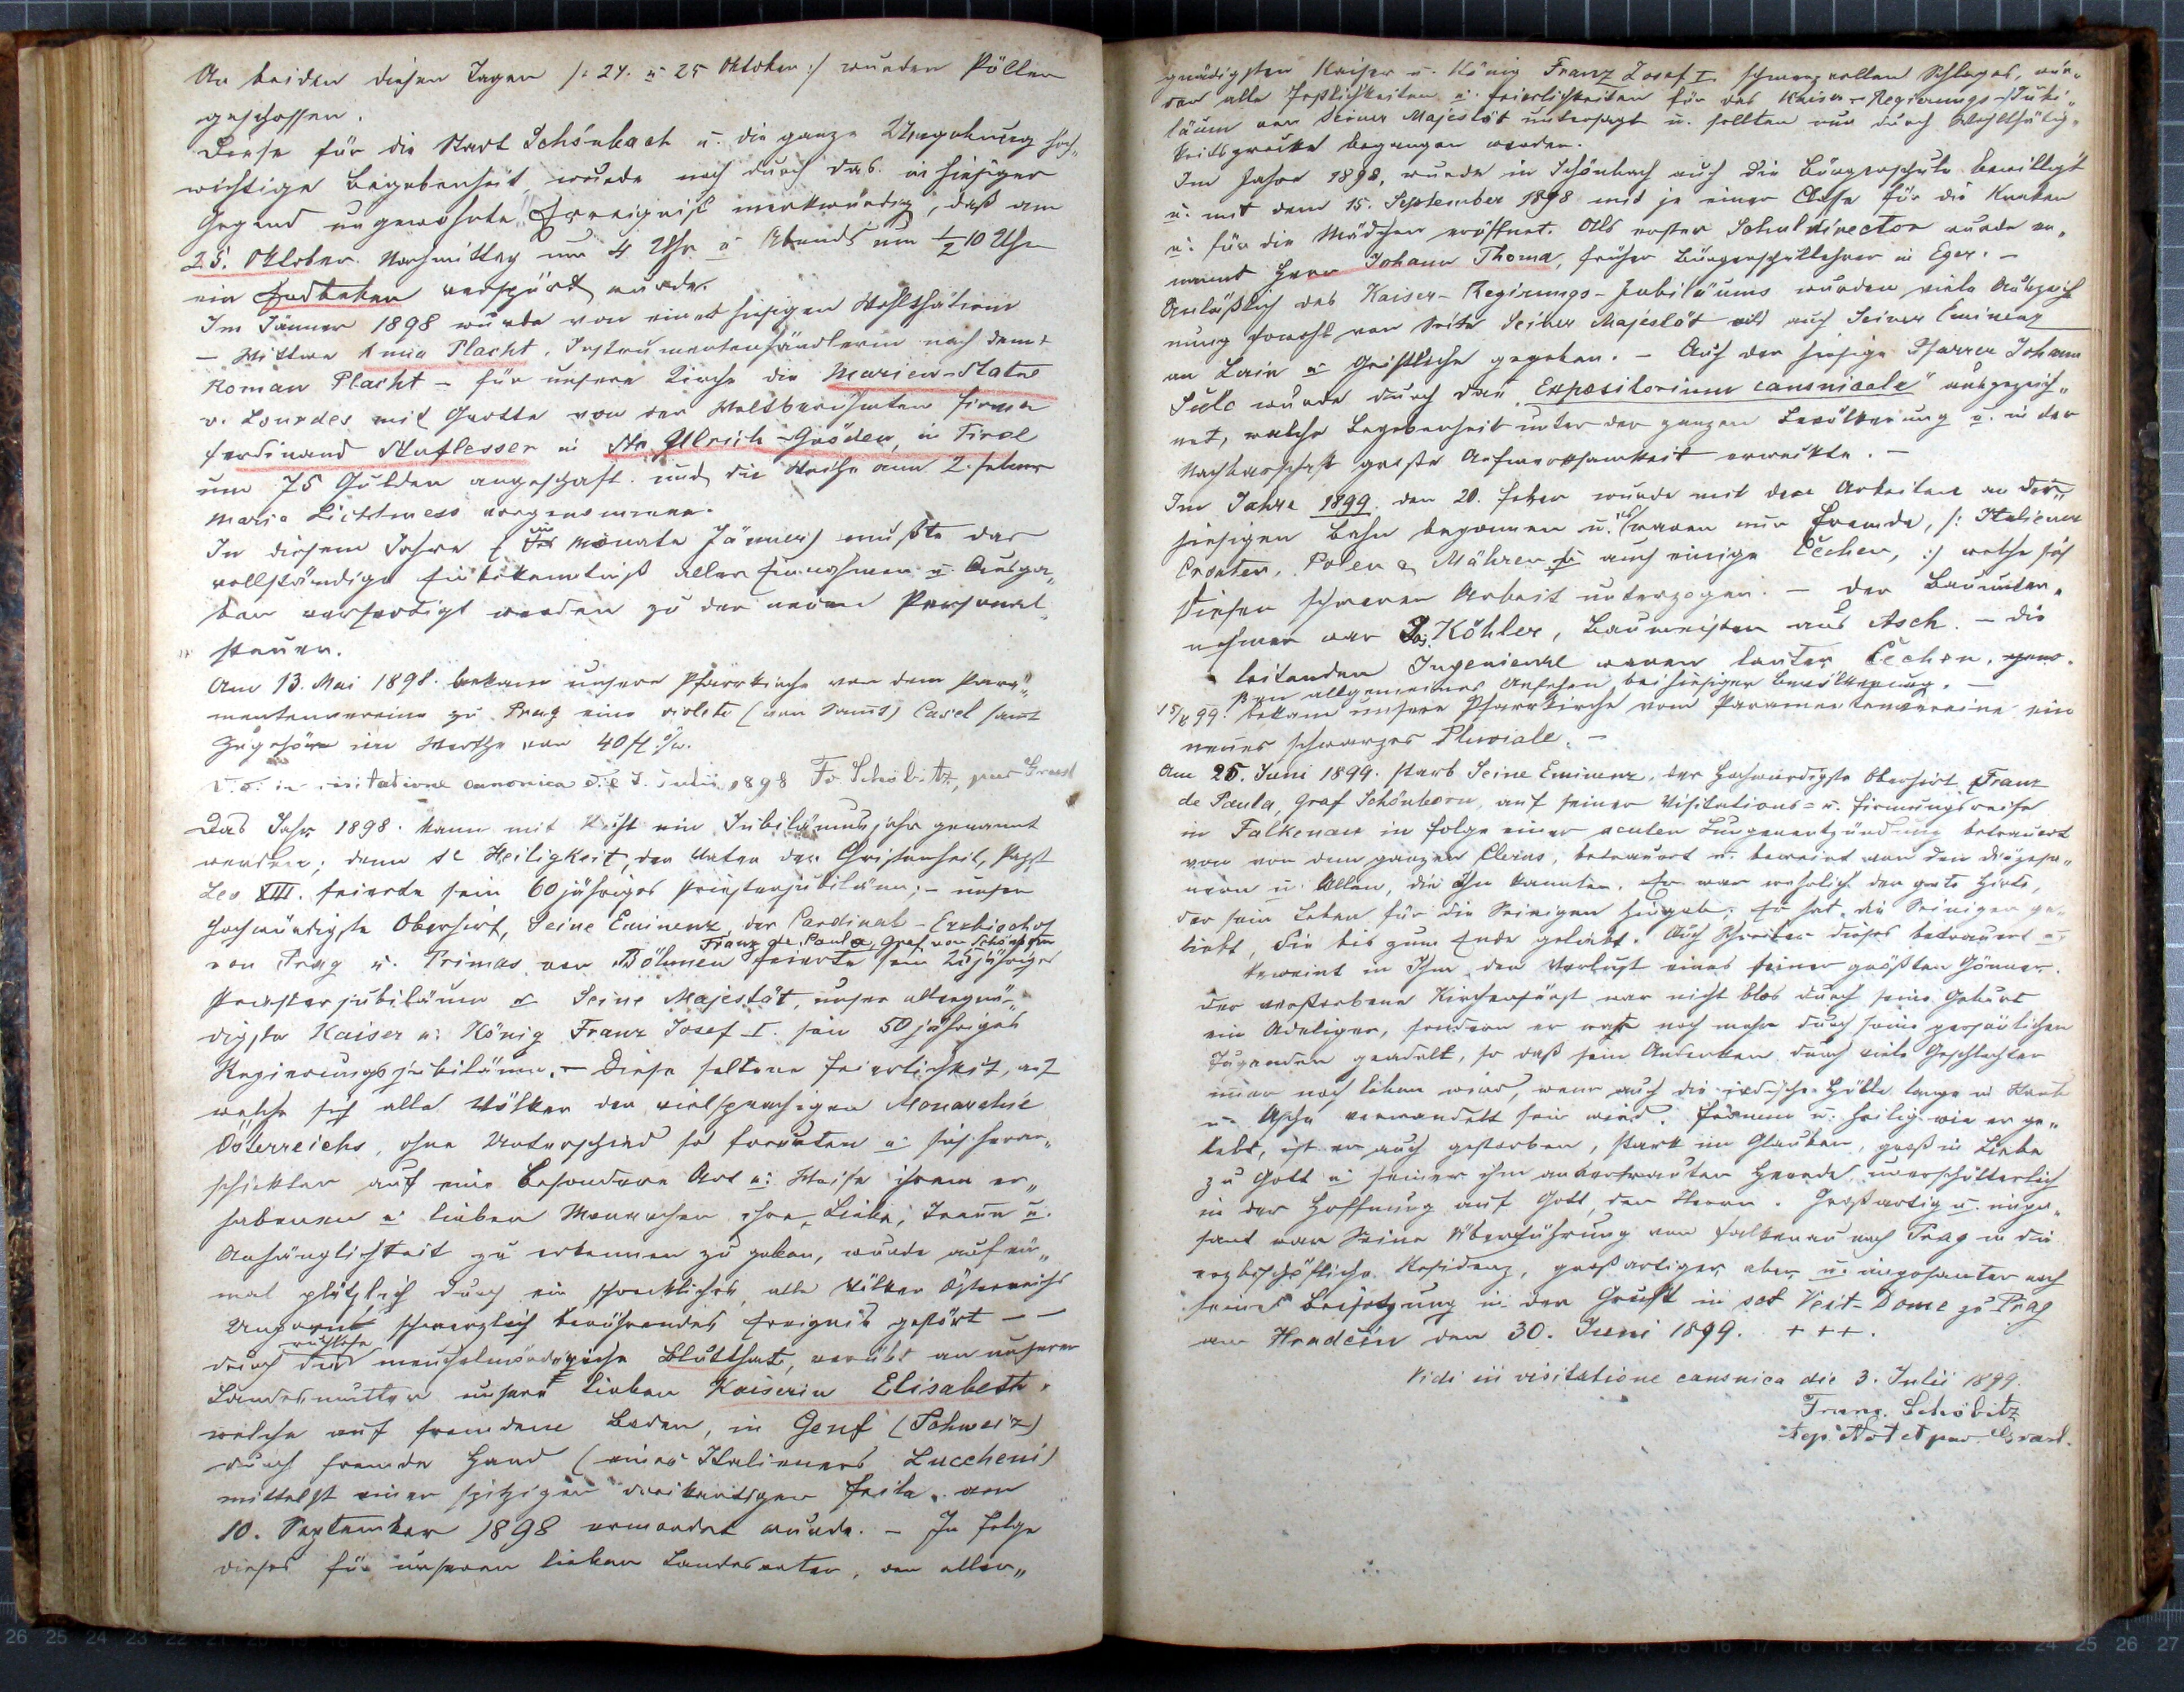 An beiden diesen Tagen /: 24. u. 25 Oktober :/ wurden Pöller
geschossen.
Diese für die Stadt Schönbach u. die ganze Umgebung hoch„
wichtige Begebenheit wurde noch durch das in hiesiger
Gegend ungewohnte Ereigniß merkwürdig, daß am
25. Oktober Nachmittag um 4 Uhr u. Abends um ½10 Uhr
ein Erdbeben verspürt wurde.
Im Jänner 1898 wurde von einer hiesigen Wohlthäterin
– Wittwe Anna Placht, Instrumentenhändlerin nach dem †
Roman Placht – für unsere Kirche die Marien-Statue
v. Lourdes mit Grotte von der Weltberühmten Firma
Ferdinand Stuflesser in St. Ulrich-Gröden, in Tirol
um 75 Gulden angeschaft und die Weihe am 2. Feber
Maria Lichtmess vorgenommen.
In diesem Jahre (im Monate Jänner) mußte das
vollständige Einbekenntniß aller Einnahmen u. Ausga„
ben verfertigt werden zu der neuen Personal„
steuer.
Am 13. Mai 1898. bekam unsere Pfarrkirche von dem Para„
mentenvereine zu Prag eine violete (von Sammt) Casel samt
Zugehöre im Werthe von 40 fl ö/w.
Vidi in visitatione canonica die 7. Julii 1898 Fr. Schöbitz,
Das Jahr 1898. kann mit Recht ein Jubiläumsjahr genannt
werden; denn Se Heiligkeit, der Vater der Christenheit, Papst
Leo XIII. feierte sein 60jähriges Priesterjubiläum; – unser
Hochwürdigste Oberhirt, Seine Eminenz, der Cardinal-Erzbischof
Franz de Paula, Graf von Schönborn
von Prag u. Primas von Böhmen feierte sein 25jähriges
Priesterjubiläum u. Seine Majestät, unser allergnä„
digste Kaiser u. König Franz Josef I. sein 50jähriges
Regierungsjubiläum. – Diese seltene Feierlichkeit, auf
welche sich alle Völker der vielsprachigen Monarchie
Österreichs, ohne Unterschied so freuten u. sich heran„
schickten auf eine besondere Art u. Weise ihrem er„
habenen u. lieben Monarchen ihre Liebe, Treue u.
Anhänglichkeit zu erkennen zu geben, wurde auf ein„
mal plötzlich durch ein schreckliches, alle Völker Österreichs
Ungarns schmerzlich berührendes Ereignis gestört – –
ruchlose
durch die meuchelmörderische Blutthat, verübt an unserer
Landesmutter unsere lieben Kaiserin Elisabeth,
welche auf fremdem Boden, in Genf (Schweiz)
durch fremde Hand (eines Italieners Luccheni)
mittelst einer spitzigen dreikantigen Feile am
10. September 1898 ermordet wurde. – In Folge
dieses für unseren lieben Landesvater, den aller„
gnädigsten Kaiser u. König Franz Josef I. schmerzvollen Schlages, wur„
den alle Festlichkeiten u. Feierlichkeiten für das Kaiser-Regierungs-Jubi„
läum von Seiner Majestät untersagt u. sollten nur durch Wohlthätig„
keitszwecke begangen werden.
Im Jahre 1898, wurde in Schönbach auch die Bürgerschule bewilligt
u. mit dem 15. September 1898 mit je einer Classe für die Knaben
u. für die Mädchen eröffnet. Als erster Schuldirector wurde er„
nannt Herr Johann Thoma, früher Bürgerschullehrer in Eger. –
Anläßlich des Kaiser-Regirungs-Jubiläums wurden viele Auszeich
nung sowohl von Seite Seiner Majestät als auch Seiner Eminenz
an Laien u. Geistliche gegeben. – Auch der hiesige Pfarrer Johann
Sulc wurde durch das „Expositorium canonicale" ausgezeich„
net, welche Begebenheit unter der ganzen Bevölkerung u. in der
Nachbarschaft große Aufmerksamkeit erweckte. –
Im Jahre 1899. den 20. Feber wurde mit den Arbeiten an der
hiesigen Bahn begonnen u. es waren nur Fremde, /: Italiener
Croaten, Polen & Mährer u. auch einige Čechen, :/ welche sich
diesen schweren Arbeit unterzogen. – Der Bauunter„
nehmer war Jos. Köhler, Baumeister aus Asch. – Die
leitenden Ingenieure waren lauter Čechen, genos„
sen allgemeines Ansehen bei hiesiger Bevölkerung. –
15/6 99. bekam unsere Pfarrkirche vom Paramentenvereine ein
neues schwarzes Pluviale. –
Am 25. Juni 1899. starb Seine Eminenz, der Hochwürdigste Oberhirt Franz
de Paula, Graf Schönborn, auf seiner Visitations- u. Firmungsreise
in Falkenau in Folge einer acuten Lungenentzündung betrauert
von von dem ganzen Clerus, betrauert u. beweint von den Diözesa„
nen u. Allen, die Ihn kannten. Er war wahrlich der gute Hirte,
der sein Leben für die Seinigen hingab; Er hat die Seinigen ge„
liebt, Sie bis zum Ende geliebt. Auch Schreiber dieses betrauert u.
beweint in Ihm den Verlust eines seiner größten Gönner.
Der verstorbene Kirchenfürst war nicht blos durch seine Geburt
ein Adeliger, sondern er war noch mehr durch seine persönlichen
Tugenden geadelt, so daß sein Andenken durch viele Geschlechter
immer noch leben wird, wenn auch die irdische Hülle lange in Staub
u. Asche verwandelt sein wird. Fromm u. heilig wie er ge„
lebt, ist er auch gestorben, stark im Glauben, groß in Liebe
zu Gott u. seiner ihm anvertrauten Heerde, unerschütterlich
in der Hoffnung auf Gott, den Herrn. Großartig u. impo„
sant war Seine Überführung von Falkenau nach Prag in die
erzbischöfliche Residenz, großartiger, aber u. imposanter noch
seine Beisetzung in der Gruft in sct Veit-Dome zu Prag
am Hradčin den 30. Juni 1899. +++.
Vidi in visitatione canonica die 3. Julii 1899.
Franz. Schöbitz